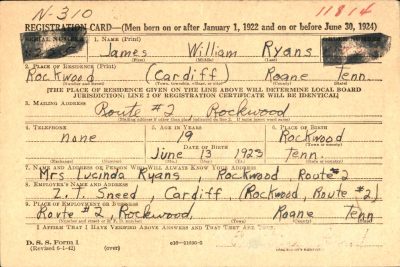 N-310
11814
REGISTRATION CARD—(Men born on or after January 1, 1922 and on or before June 30, 1924)
SERIAL NUMBER 1. NAME (Print) ORDER NUMBER
James William Ryans
(First) (Middle) (Last)
2. PLACE OF RESIDENCE (Print)
Rockwood (Cardiff) Roane Tenn.
(Number and street) (Town, township, village, or city) (County) (State)
[THE PLACE OF RESIDENCE GIVEN ON THE LINE ABOVE WILL DETERMINE LOCAL BOARD
JURISDICTION; LINE 2 OF REGISTRATION CERTIFICATE WILL BE IDENTICAL]
3. MAILING ADDRESS
Route #2 Rockwood
[Mailing address if other than place indicated on line 2. If same insert word same]
4. TELEPHONE 5. AGE IN YEARS 6. PLACE OF BIRTH
none 19 Rockwood
DATE OF BIRTH (Town or county)
June 13 1923 Tenn.
(Exchange) (Number) (Mo.) (Day) (Yr.) (State or country)
7. NAME AND ADDRESS OF PERSON WHO WILL ALWAYS KNOW YOUR ADDRESS
Mrs Lucinda Ryans, Rockwood Route 2
8. EMPLOYER'S NAME AND ADDRESS
I. T. Sneed, Cardiff (Rockwood, Route #2)
9. PLACE OF EMPLOYMENT OR BUSINESS
Route #2, Rockwood, Roane Tenn
(Number and street or R. F. D. number) (Town) (County) (State)
I AFFIRM THAT I HAVE VERIFIED ABOVE ANSWERS AND THAT THEY ARE TRUE.
D. S. S. Form 1
(Revised 6-1-42) (over)